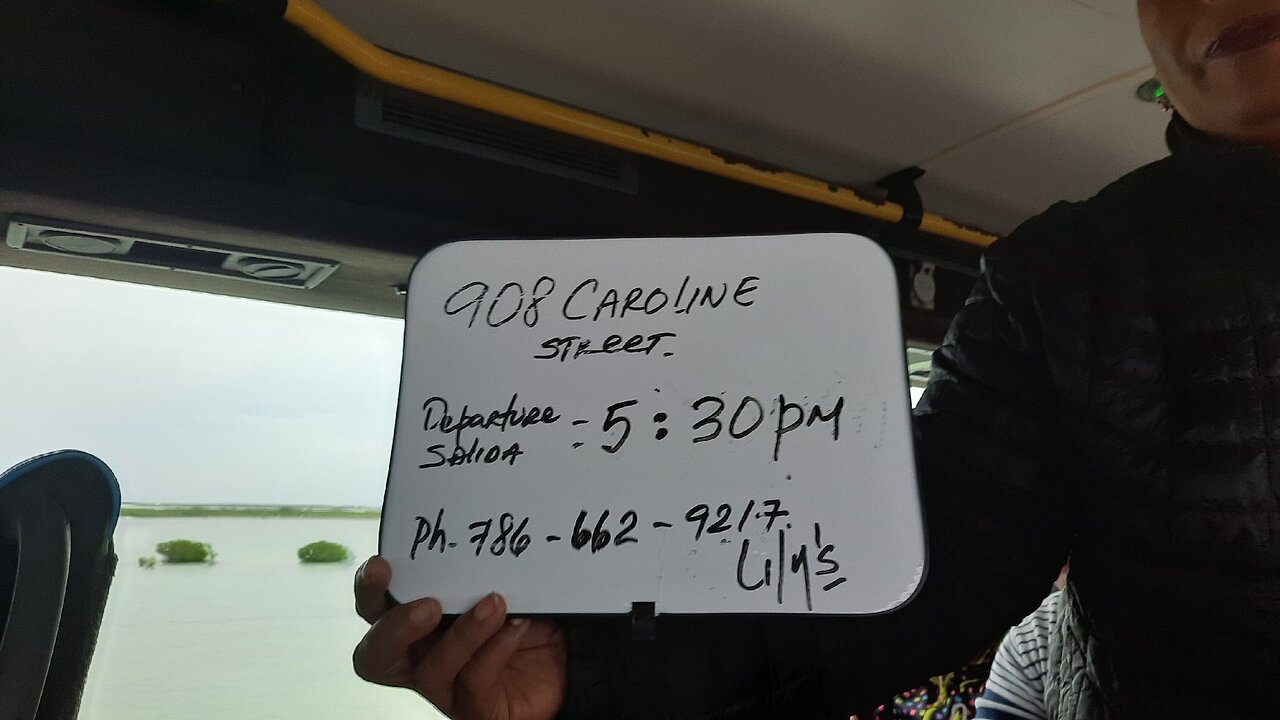 908 CAROLINE
STREET.
Departure
SALIDA
=5:30pM
Ph. 786-662-9217.
Lily's